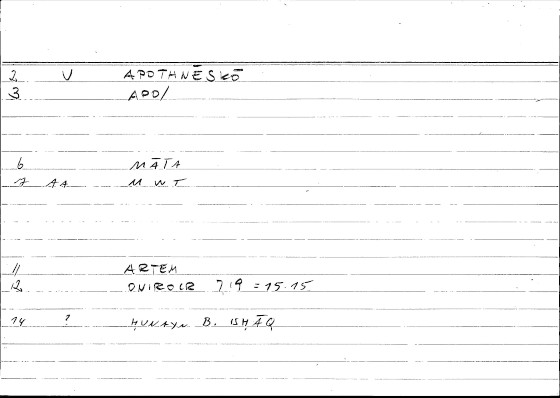 2 V APOTHNĒSKŌ
3 APO/
6 MĀTA
7 AA M W T
11 ARTEM
12 ONIROCR 7,9 = 15.15
14 ? ḤUNAYN B. ISḤĀQ